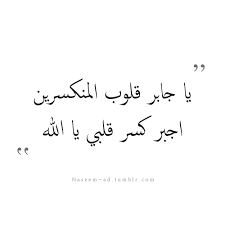 ”
يا جابر قلوب المنكسرين
اجبر كسر قلبي يا الله
“
Naseem-ad.tumblr.com